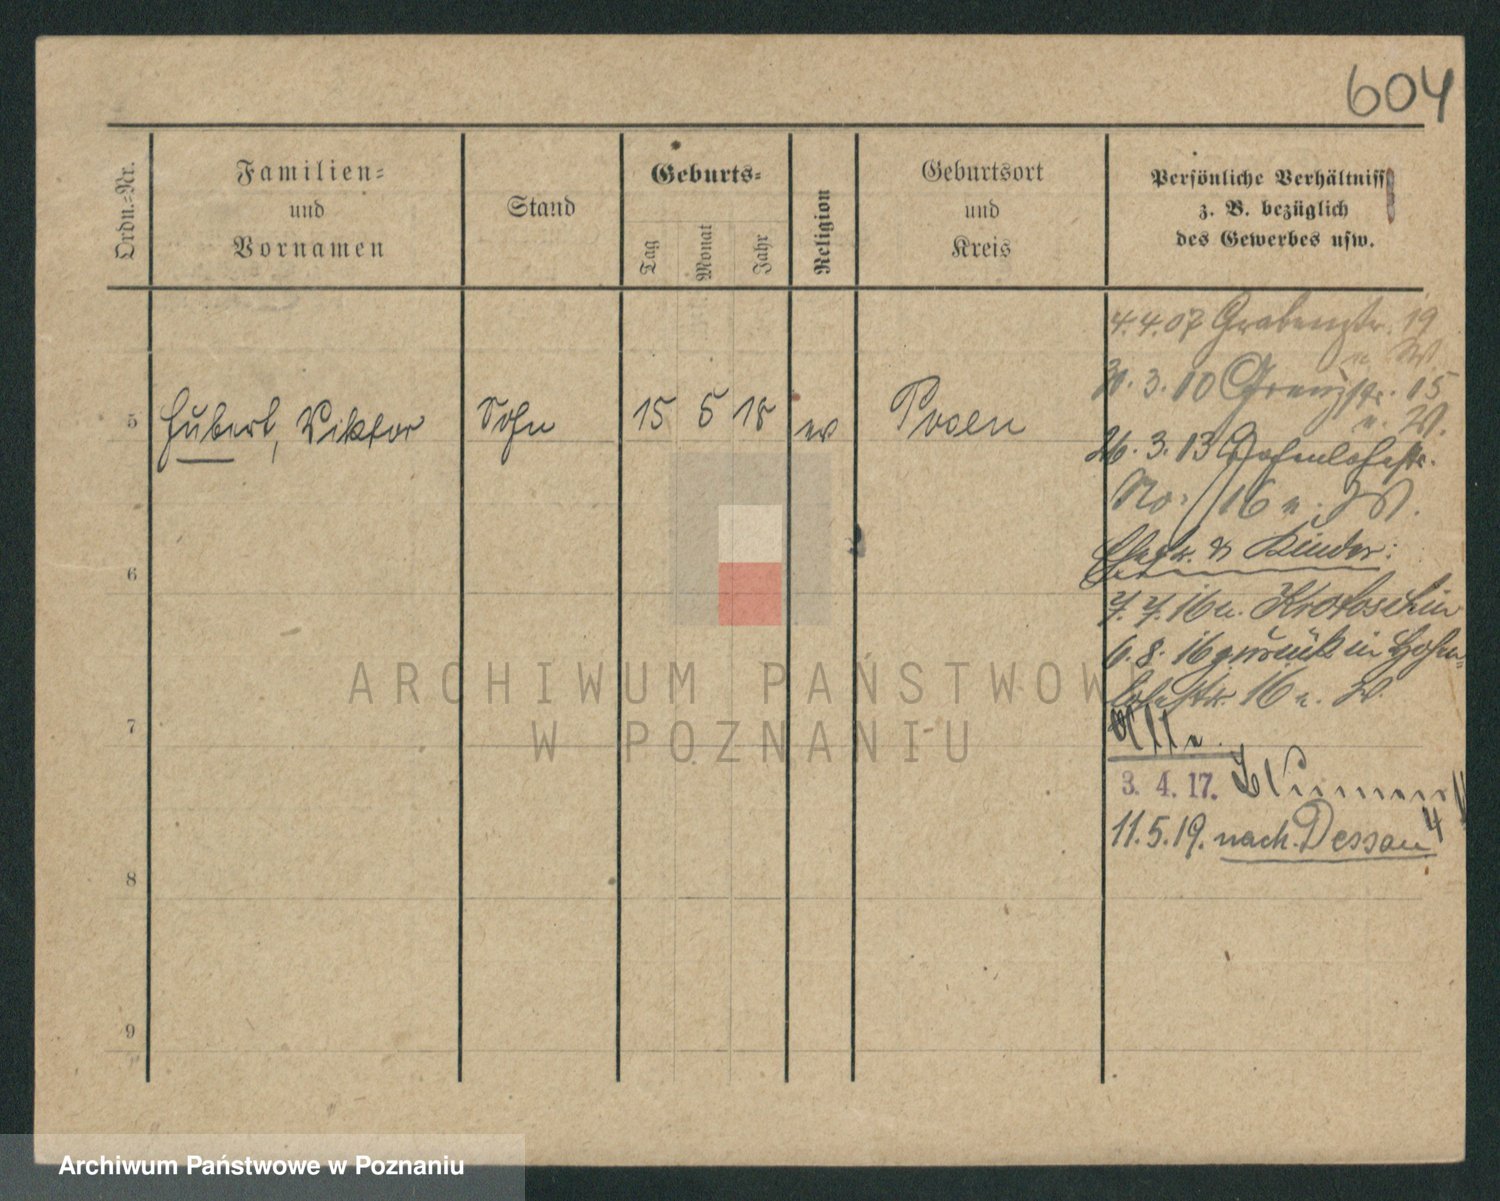 604
Ordn.-Nr.
Familien-
und
Vornamen
Stand
Geburts-
Tag
Monat
Jahr
Religion
Geburtsort
und
Kreis
Persönliche Verhältniss
z. B. bezüglich
des Gewerbes usw.
5
Hubert, Viktor
Sohn
15
5
18
ev
Posen
6
7
8
9
4.4.07 Grabenstr. 19
n. W.
31. 3. 10 Grenzstr. 15
n. W.
26. 3. 13 Hohenlohestr.
No. 16 n. W.
Ehefr. & Kinder:
7. 7. 16 n. Krotoschin
6. 8. 16 zurück in Hohen-
lohestr. 16 n. W.
Alle
3. 4. 17.
11.5.19. nach Dessau
ARCHIWUM PAŃSTWOWE
W POZNANIU
Archiwum Państwowe w Poznaniu